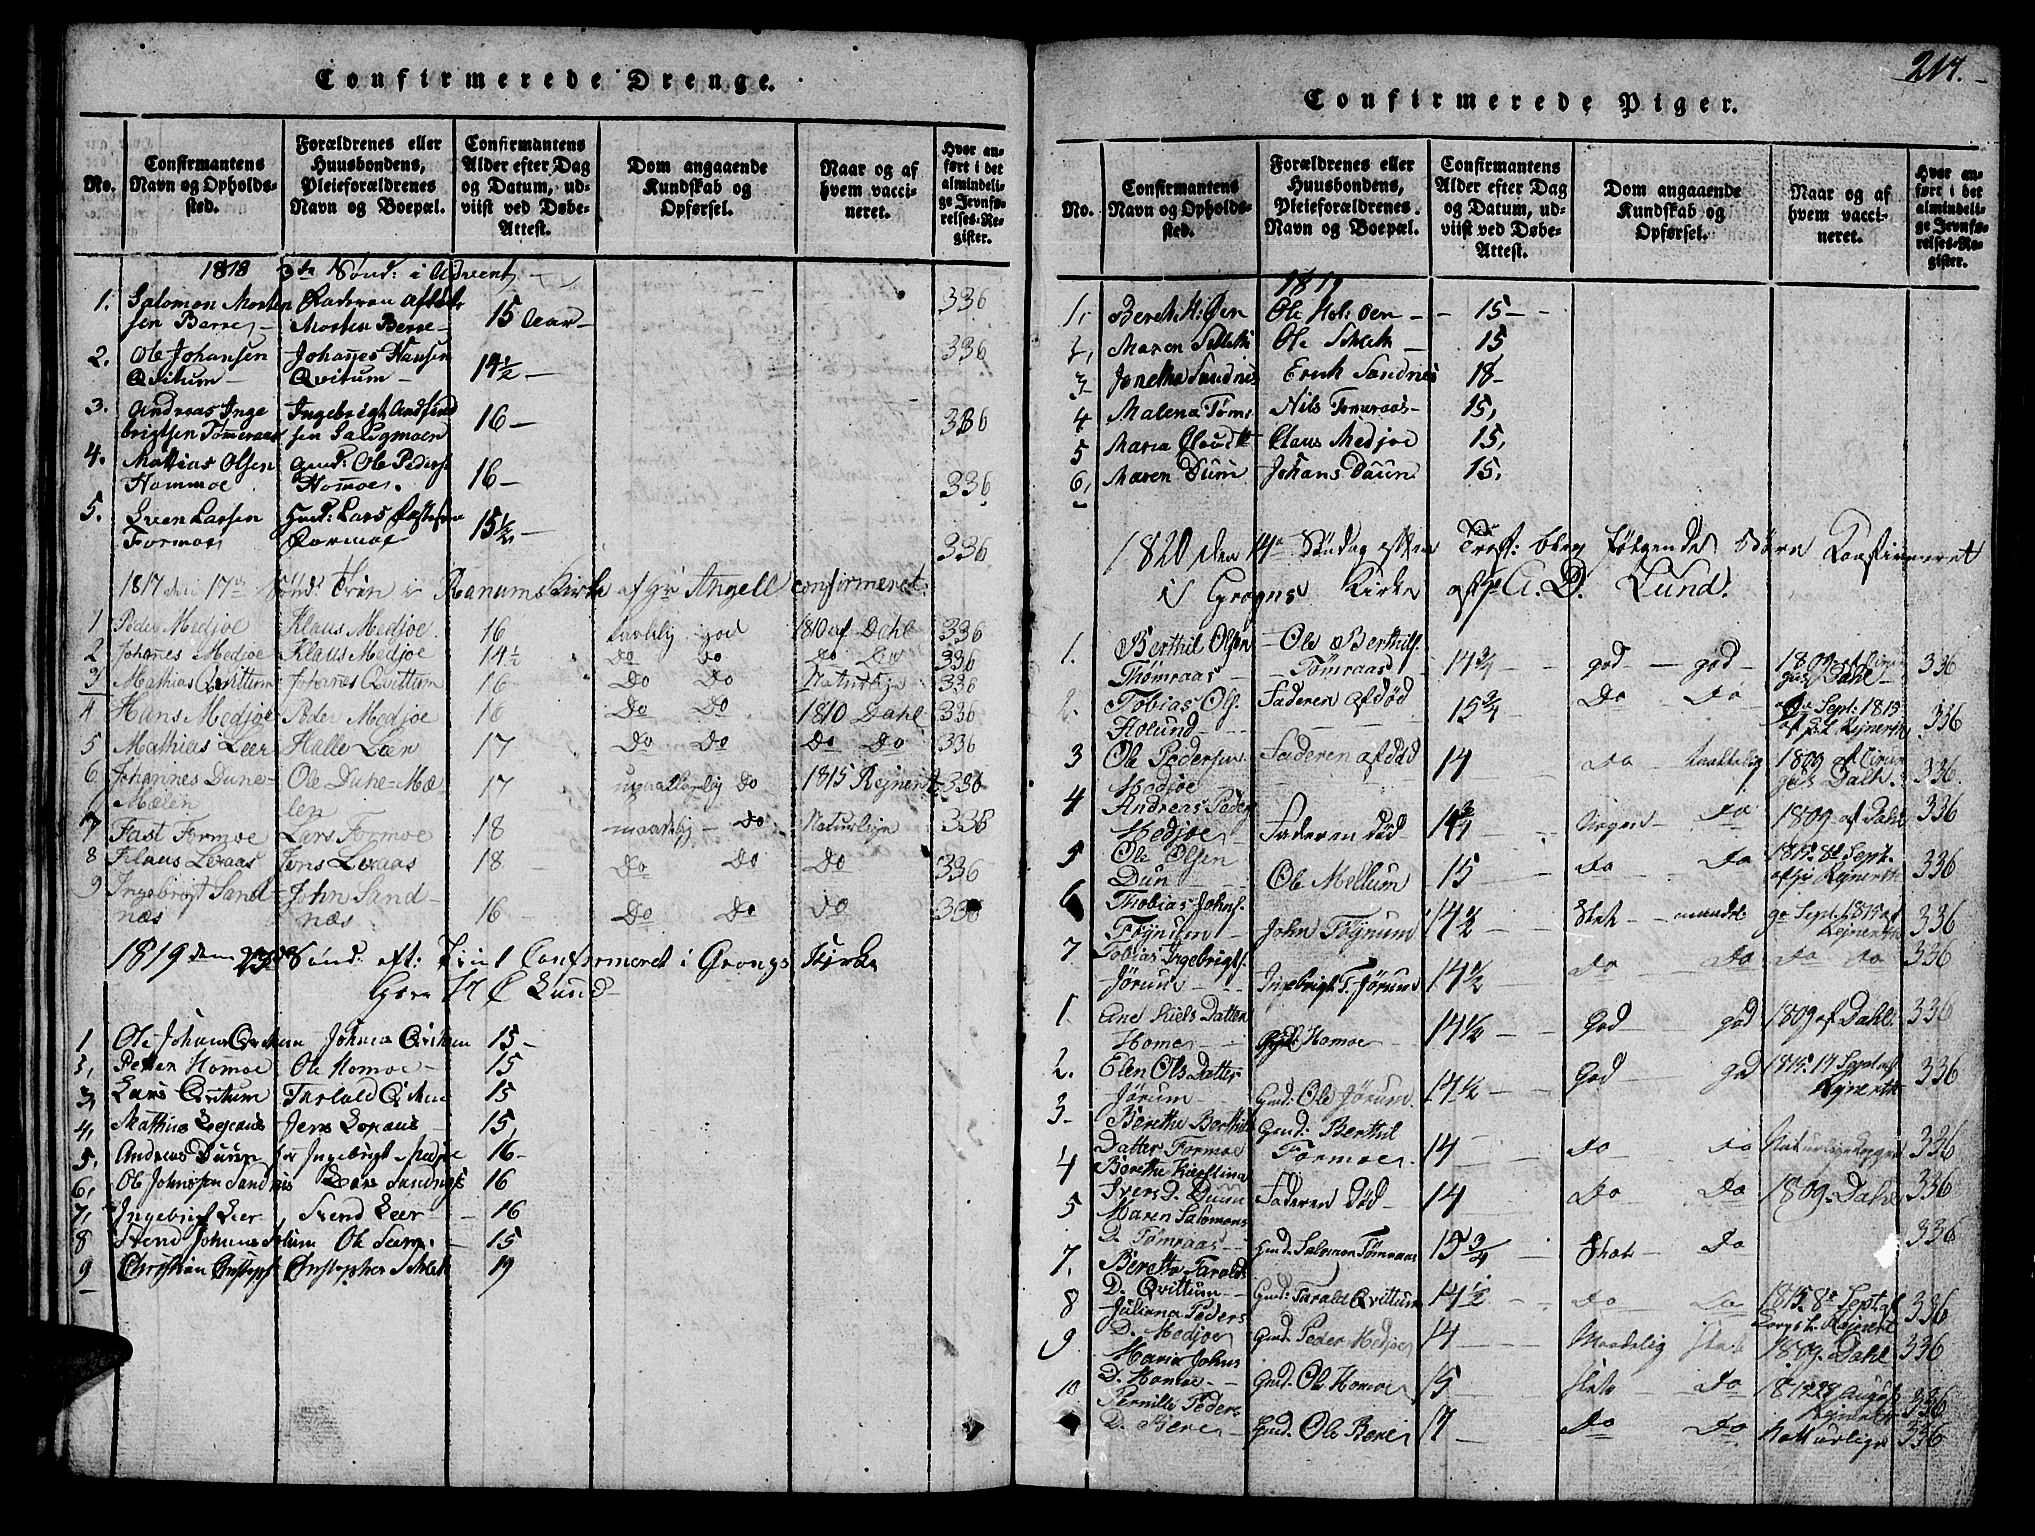 Confirmerede Drenge.
No.
Confirmantens Navn og Opholdssted.
Forældrenes eller Huusbondens, Pleieforældrenes Navn og Boepæl.
Confirmantens Alder efter Dag og Datum, udviist ved Døbe-Attest.
Dom angaaende Kundskab og Opførsel.
Naar og af hvem vaccineret.
Hvor anført i det almindelige Jevnførelses-Register.
1818 3die Sønd: i Advent
1. Salomon Morten Faderen
sen Berre Morten Berre 15 Aar 336
2. Ole Johansen Johannes Hansen
Qvitum Qvitum 14½ 336
3. Andreas Inge Ingebrigt
brigtsen Tømeraas sen 16 336
4. Mathias Olsen Gmd: Ole Peders
Hommoe Hommoe. 16 336
5. Sven Larsen Gmd: Lars
Formoe Formoe 15½ 336
1817 den 17de Sønd: Trin i Ranums Kirke af Hr Angell confirmeret
1 Peder Medjoe Klaus Medjoe. 16 god 1810 af Dahl 336
2 Johannes Medjoe Klaus Medjoe 14½ Do Do Do Do 336
3 Mathias Qvittum Johannes Qvittum 16 Do Do Naturlige 336
4 Hans Medjoe Peder Medjoe 16 Do Do 1810 Dahl 336
5 Mathias Leer Halle Leer 17 Do Do Do Do 336
6 Johannes Dune- Ole Dune-Mæ 17 Do 1815 Rejnert 336
Mælen len
7 Fast Formoe Lars Formoe 18 maadelig Do Naturlige 336
8 Klaus Lexaas Jens Lexaas 18 Do Do Do 336
9 Ingebrigt Sand- John Sand-
næs næs 16 Do Do Do 336
1819 den 23de Sønd. eft: Trin Confirmeret i Grongs Kirke
Lund
1 Ole Johans Qvittum Johannes Qvittum 15
2, Petter Homoe Ole Homoe 15
3, Lars Qvittum Tarlald Qvittum 15
4, Mathias Lexaas Jens Lexaas 15,
5. Andreas Duun Ingebrigt 16
6, Ole Johnssen Sandnæs Sandnæs 16
7, Ingebrigt Leer Svend Leer 16
8 Svend Johans Ole 15
9 Christian Christophs Christopher Sckleth 19
217.
Confirmerede Piger.
No.
Confirmantens Navn og Opholdssted.
Forældrenes eller Huusbondens, Pleieforældrenes Navn og Boepæl.
Confirmantens Alder efter Dag og Datum, udviist ved Døbe-Attest.
Dom angaaende Kundskab og Opførsel.
Naar og af hvem vaccineret.
Hvor anført i det almindelige Jevnførelses-Register.
1819
1, Bereth H: Øen Ole Hol: Øen 15
2, Maren Sckleth Ole Sckleth 15
3 Jonetha Sandnæs Erich Sandnes 18
4 Malena Tøms Nils Tømeraas 15,
5 Maria Claus Claus Medjoe 15,
6, Maren Duun Johans Duun 15,
1820 den 14de Søndag efter Tref: blev følgende Børn Konfirmeret
i Grongs Kirke af Hr A. D. Lund.
1. Berthil Olsen Ole Berthils.
Thømraas Tømraas 14¾ god god 1809 af Dahl 336
2. Tobias Ols. Faderen afdød 15¾ Do Do Sept: 1815
Holund Rejnerth 336
3 Ole Pedersen Faderen afdød 14 Do 1809 af
Medjoe Dahl. 336
4 Andreas Peders
Medjoe Faderen død 14¾ Do 1809 af Dahl 336
5 Ole Olsen
Duun Ole Mellum 15 Do Do 1815 8de Sept. Rejnerth 336
6 Thobias Johns.
Fljnum John Fljnum 14½ Slet Sept. 1815 af Rejnerth 336
7 Tobias Ingebrigts.
Jørum Ingebrigt T. Jørum 14½ Do Do Do Do 336
1. Ane Niels Datter
Homoe Homoe 14½ God god 1809 af Dahl. 336
2. Elen Ols Datter
Jørum Gmd: Ole Jørum 14½ God god 1815 Sept af Rejnerth 336
3. Berethe Berthils Gmd: Berthil
Datter Formoe Formoe. 14 Do Do 336
4 Berethe Kierstina
Ivers D. Duun Faderen død 14 Do Do 1809. Dahl 336
5 Maren Salomons
D. Tømraas Gmd. Salomon Tømraas 15¾ Slet Do 336
7. Beretha Taralds
D. Qvittum Gmd: Tarald Qvittum 14½ Do Do 1815 8de Sept af Rejnert 336
8 Juliana Peders
D. Medjoe Gmd: Peder Medjoe 14 Maadelig Slet 1809. Dahl 336
9 Maria Johns
D. Homoe Gmd: Ole Homoe 15 Slet Do August Rejnerth 336
10 Pernille Peders
D. Bere Gmd. Ole Bere 17 Do Do Naturlige 336